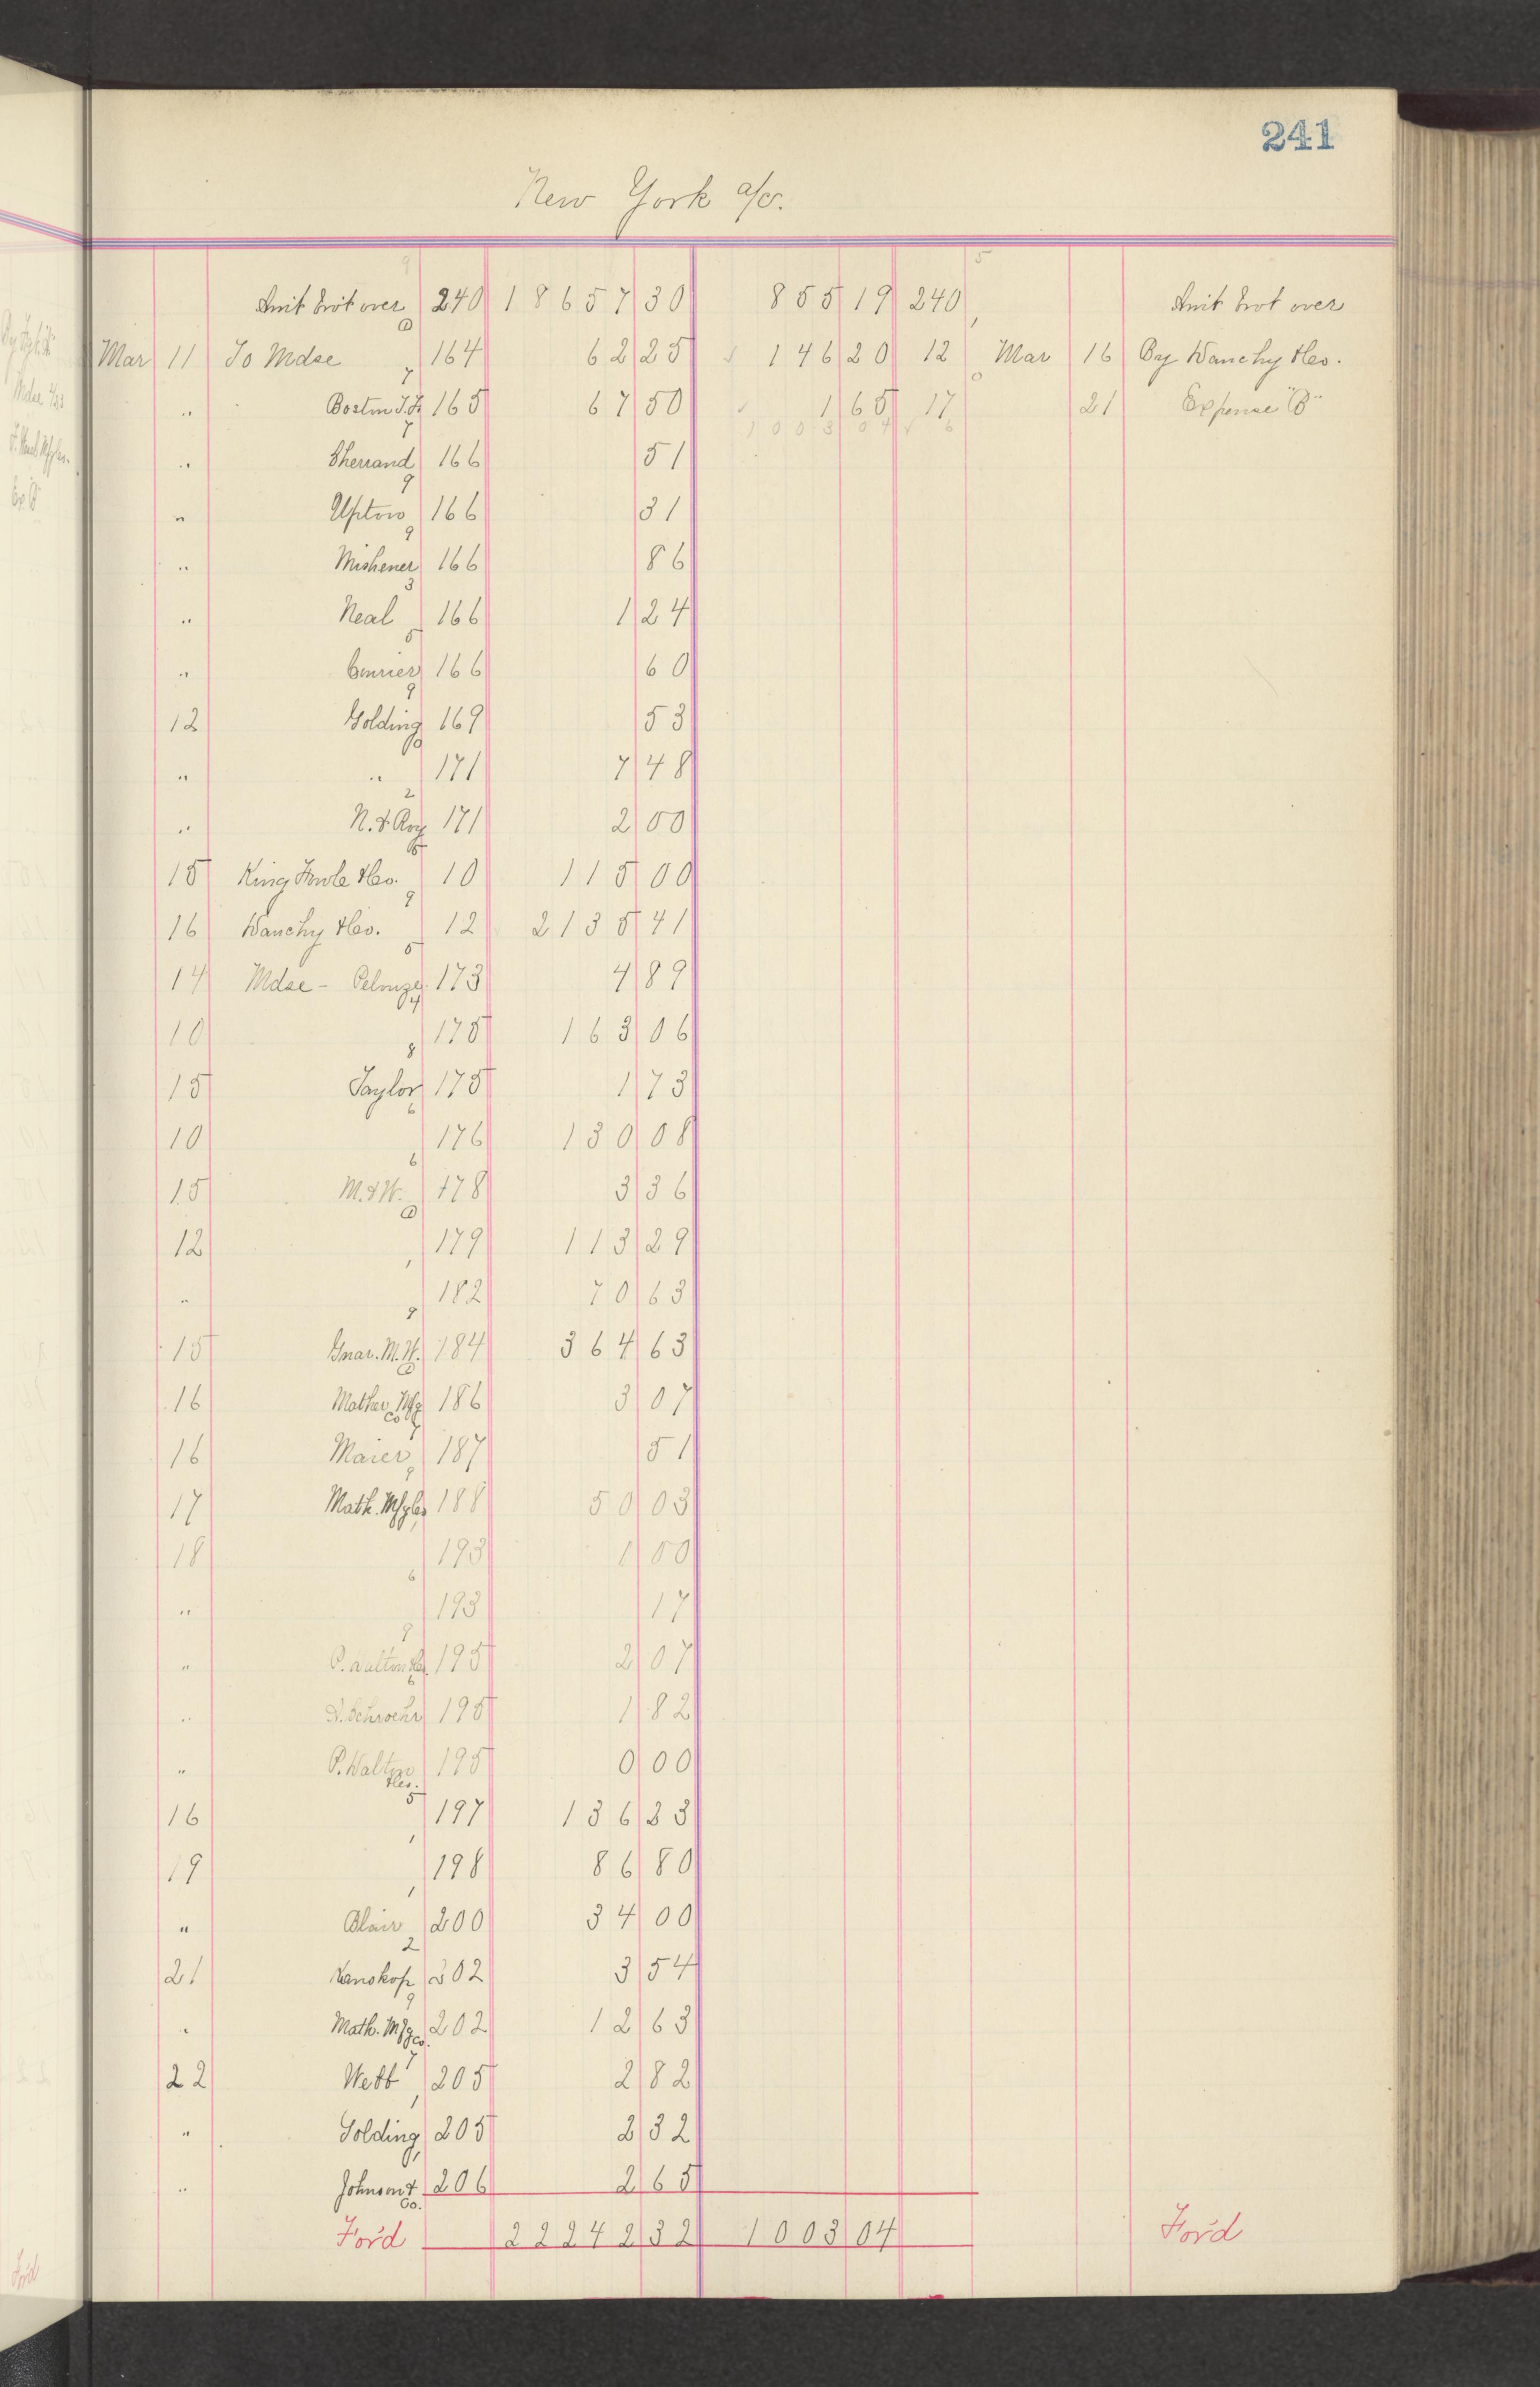 241
New York a/c.
Amt brot over 240 18657 30 855 19 240 Amt brot over
Mar 11 To Mdse 164 62 25 146 20 12 Mar 16 By Wanchy &Co.
" Boston 165 67 50 1 65 17 21 Expense "B"
1003 04
" Sherrand 166 51
" Upton 166 31
" Mishener 166 86
" Neal 166 1 24
" Currier 166 60
12 Golding 169 53
" " 171 7 48
" N. & Roy 171 2 00
15 King Fowle &Co. 10 115 00
16 Wanchy &Co. 12 2135 41
14 Mdse - Pelouze 173 4 89
10 175 163 06
15 Taylor 175 1 73
10 176 130 08
15 M. & W. 178 3 36
12 179 113 29
" 182 70 63
15 Guar. M. H. 184 364 63
16 Mather Mfg Co 186 3 07
16 Maier 187 51
17 Math. Mfg Co 188 50 03
18 193 1 00
" 193 17
" P. Walton &Co. 195 2 07
" A. Schroehr 195 1 82
" P. Walton &Co. 195 0 00
16 197 136 33
19 198 86 80
" Blair 200 34 00
21 Vanskop 202 3 54
" Math. Mfg Co. 202 12 63
22 Webb 205 2 82
" Golding 205 2 32
" Johnson & Co. 206 2 65
For'd 22242 32 1003 04 For'd